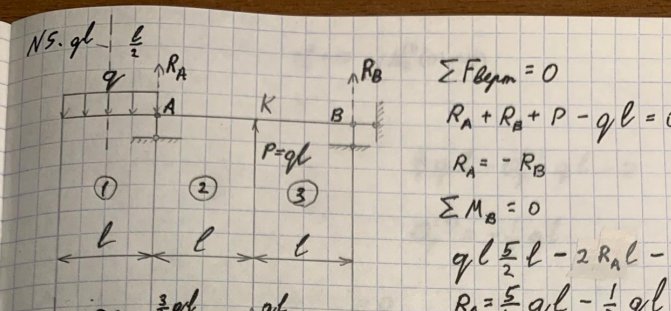 N5. ql
l/2
q
R_A
R_B
A
K
B
P=ql
1
2
3
l
l
l
ΣFверт = 0
R_A + R_B + P - ql =
R_A = - R_B
ΣM_B = 0
ql 5/2 l - 2 R_A l -
ql - 1/2 ql
3/2 ql
ql